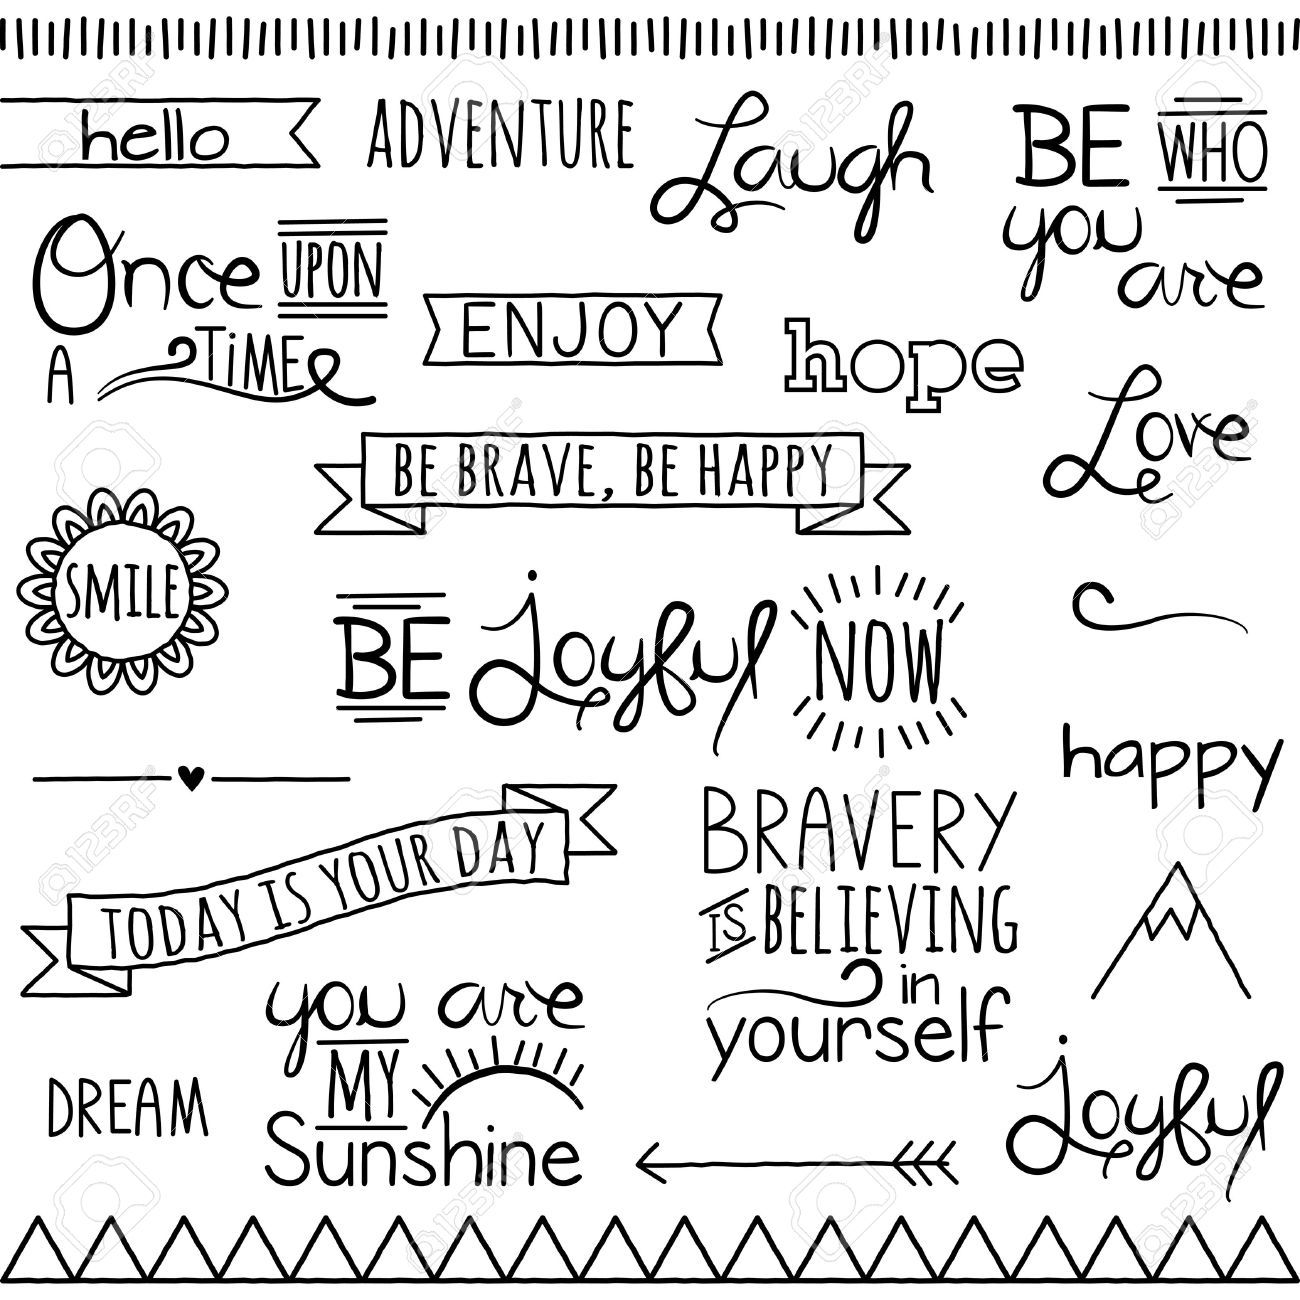 hello
ADVENTURE
Laugh
BE WHO
you
are
Once UPON
A TIME
ENJOY
hope
Love
BE BRAVE, BE HAPPY
SMILE
BE Joyful NOW
happy
TODAY IS YOUR DAY
BRAVERY
IS BELIEVING
in
yourself
you are
MY
Sunshine
DREAM
Joyful
123RF